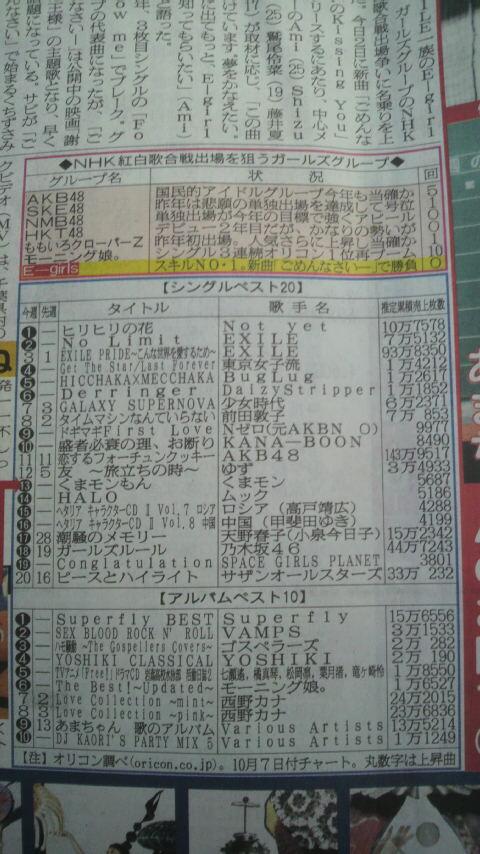 ILE一族のE-girl
ガールズグループのNHK
歌合戦出場争いに名乗りを上
た。今日2日に新曲「ごめんな
のKissing You」
リースするにあたり、中心メ
のAmi(25)Shizu
(25)鷲尾伶菜(19)藤井夏
17)が取材に応じ、「この曲
に出てもっと、E-girl
知ってもらいたい」(Ami)
けています。夢をかなえたい。
と語った。
年、3枚目シングルの「Fo
ow me」でブレーク。グ
プの代表曲になったが、「ご
なさい」は公開中の映画「謝
王様」の主題歌となり、早く
話題になっている。サビが「ご
なさい」で始まるくちずさみ
クビデオ(MV)は、千
◆NHK紅白歌合戦出場を狙うガールズグループ◆
グループ名 状況 回
AKB48 国民的アイドルグループ今年も当確か 5
SKE48 昨年は悲願の単独出場を達成して号泣 1
NMB48 単独出場が今年の目標で強くアピール 0
HKT48 デビュー2年目だが、かなりの勢いが 0
ももいろクローバーZ 昨年初出場。人気さらに上昇し当確か 1
モーニング娘。 シングル3連続オリコン上位再ブレーク 10
E-girls スキルNO・1。新曲「ごめんなさいー」で勝負 0
【シングルベスト20】
今週 先週 タイトル 歌手名 推定累積売上枚数
1 — ヒリヒリの花 Not yet 10万7578
2 — No Limit EXILE 7万5132
3 1 EXILE PRIDE~こんな世界を愛するため~ EXILE 93万8350
4 — Get The Star/Last Forever 東京女子流 1万4212
5 — HICCHAKA×MECCHAKA BugLug 1万2617
6 — Derringer DaizyStripper 1万1852
7 3 GALAXY SUPERNOVA 少女時代 6万2371
8 2 タイムマシンなんていらない 前田敦子 7万 853
9 — ドギマギFirst Love Nゼロ(元AKBN 0) 9977
10 — 盛者必衰の理、お断り KANA-BOON 8490
11 11 恋するフォーチュンクッキー AKB48 143万9517
12 5 友 ~旅立ちの時~ ゆず 3万4933
13 — くまモンもん くまモン 5687
14 — HALO ムック 5186
15 — ヘタリア キャラクターCD Ⅱ Vol.7 ロシア ロシア(高戸靖広) 4288
16 — ヘタリア キャラクターCD Ⅱ Vol.8 中国 中国(甲斐田ゆき) 4199
17 28 潮騒のメモリー 天野春子(小泉今日子) 15万2342
18 19 ガールズルール 乃木坂46 44万7243
19 — Conglatulation SPACE GIRLS PLANET 3801
20 16 ピースとハイライト サザンオールスターズ 33万 232
【アルバムベスト10】
1 — Superfly BEST Superfly 15万6556
2 — SEX BLOOD ROCK N' ROLL VAMPS 3万1533
3 — ハモ騒動~The Gospellers Covers~ ゴスペラーズ 2万 282
4 — YOSHIKI CLASSICAL YOSHIKI 2万 190
5 — TVアニメ「Free!」ドラマCD 岩鳶高校水泳部 活動日誌2 七瀬遙、橘真琴、松岡凛、葉月渚、竜ヶ崎怜 1万8550
6 — The Best!~Updated~ モーニング娘。 1万6520
7 2 Love Collection ~mint~ 西野カナ 24万2015
8 3 Love Collection ~pink~ 西野カナ 23万6836
9 13 あまちゃん 歌のアルバム Various Artists 13万5214
10 — DJ KAORI'S PARTY MIX 5 Various Artists 1万1249
【注】オリコン調べ(oricon.co.jp)。10月7日付チャート。丸数字は上昇曲